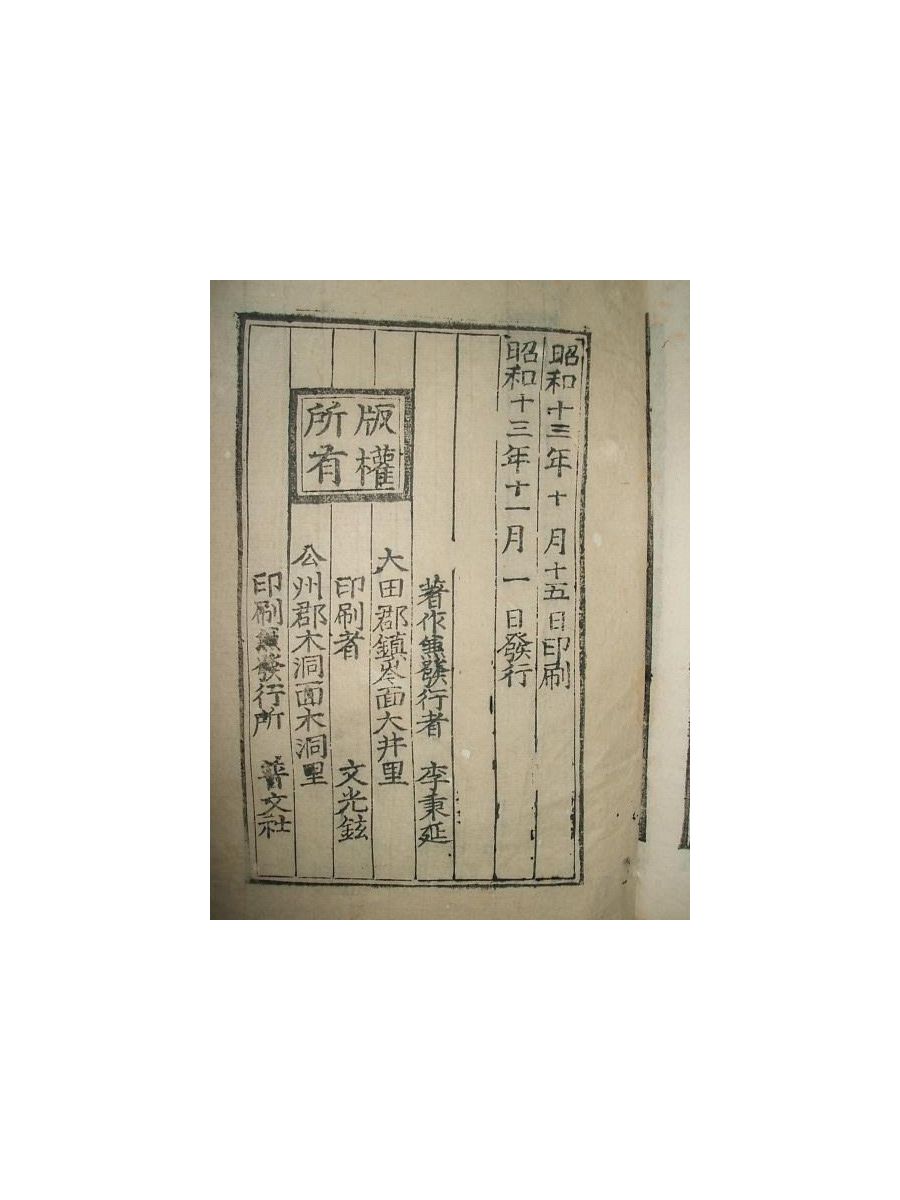 昭和十三年十月十五日印刷
昭和十三年十一月一日發行
著作兼發行者 李秉延
大田郡鎮岑面大井里
印刷者 文光鉉
公州郡木洞面木洞里
印刷兼發行所 普文社
版權
所有